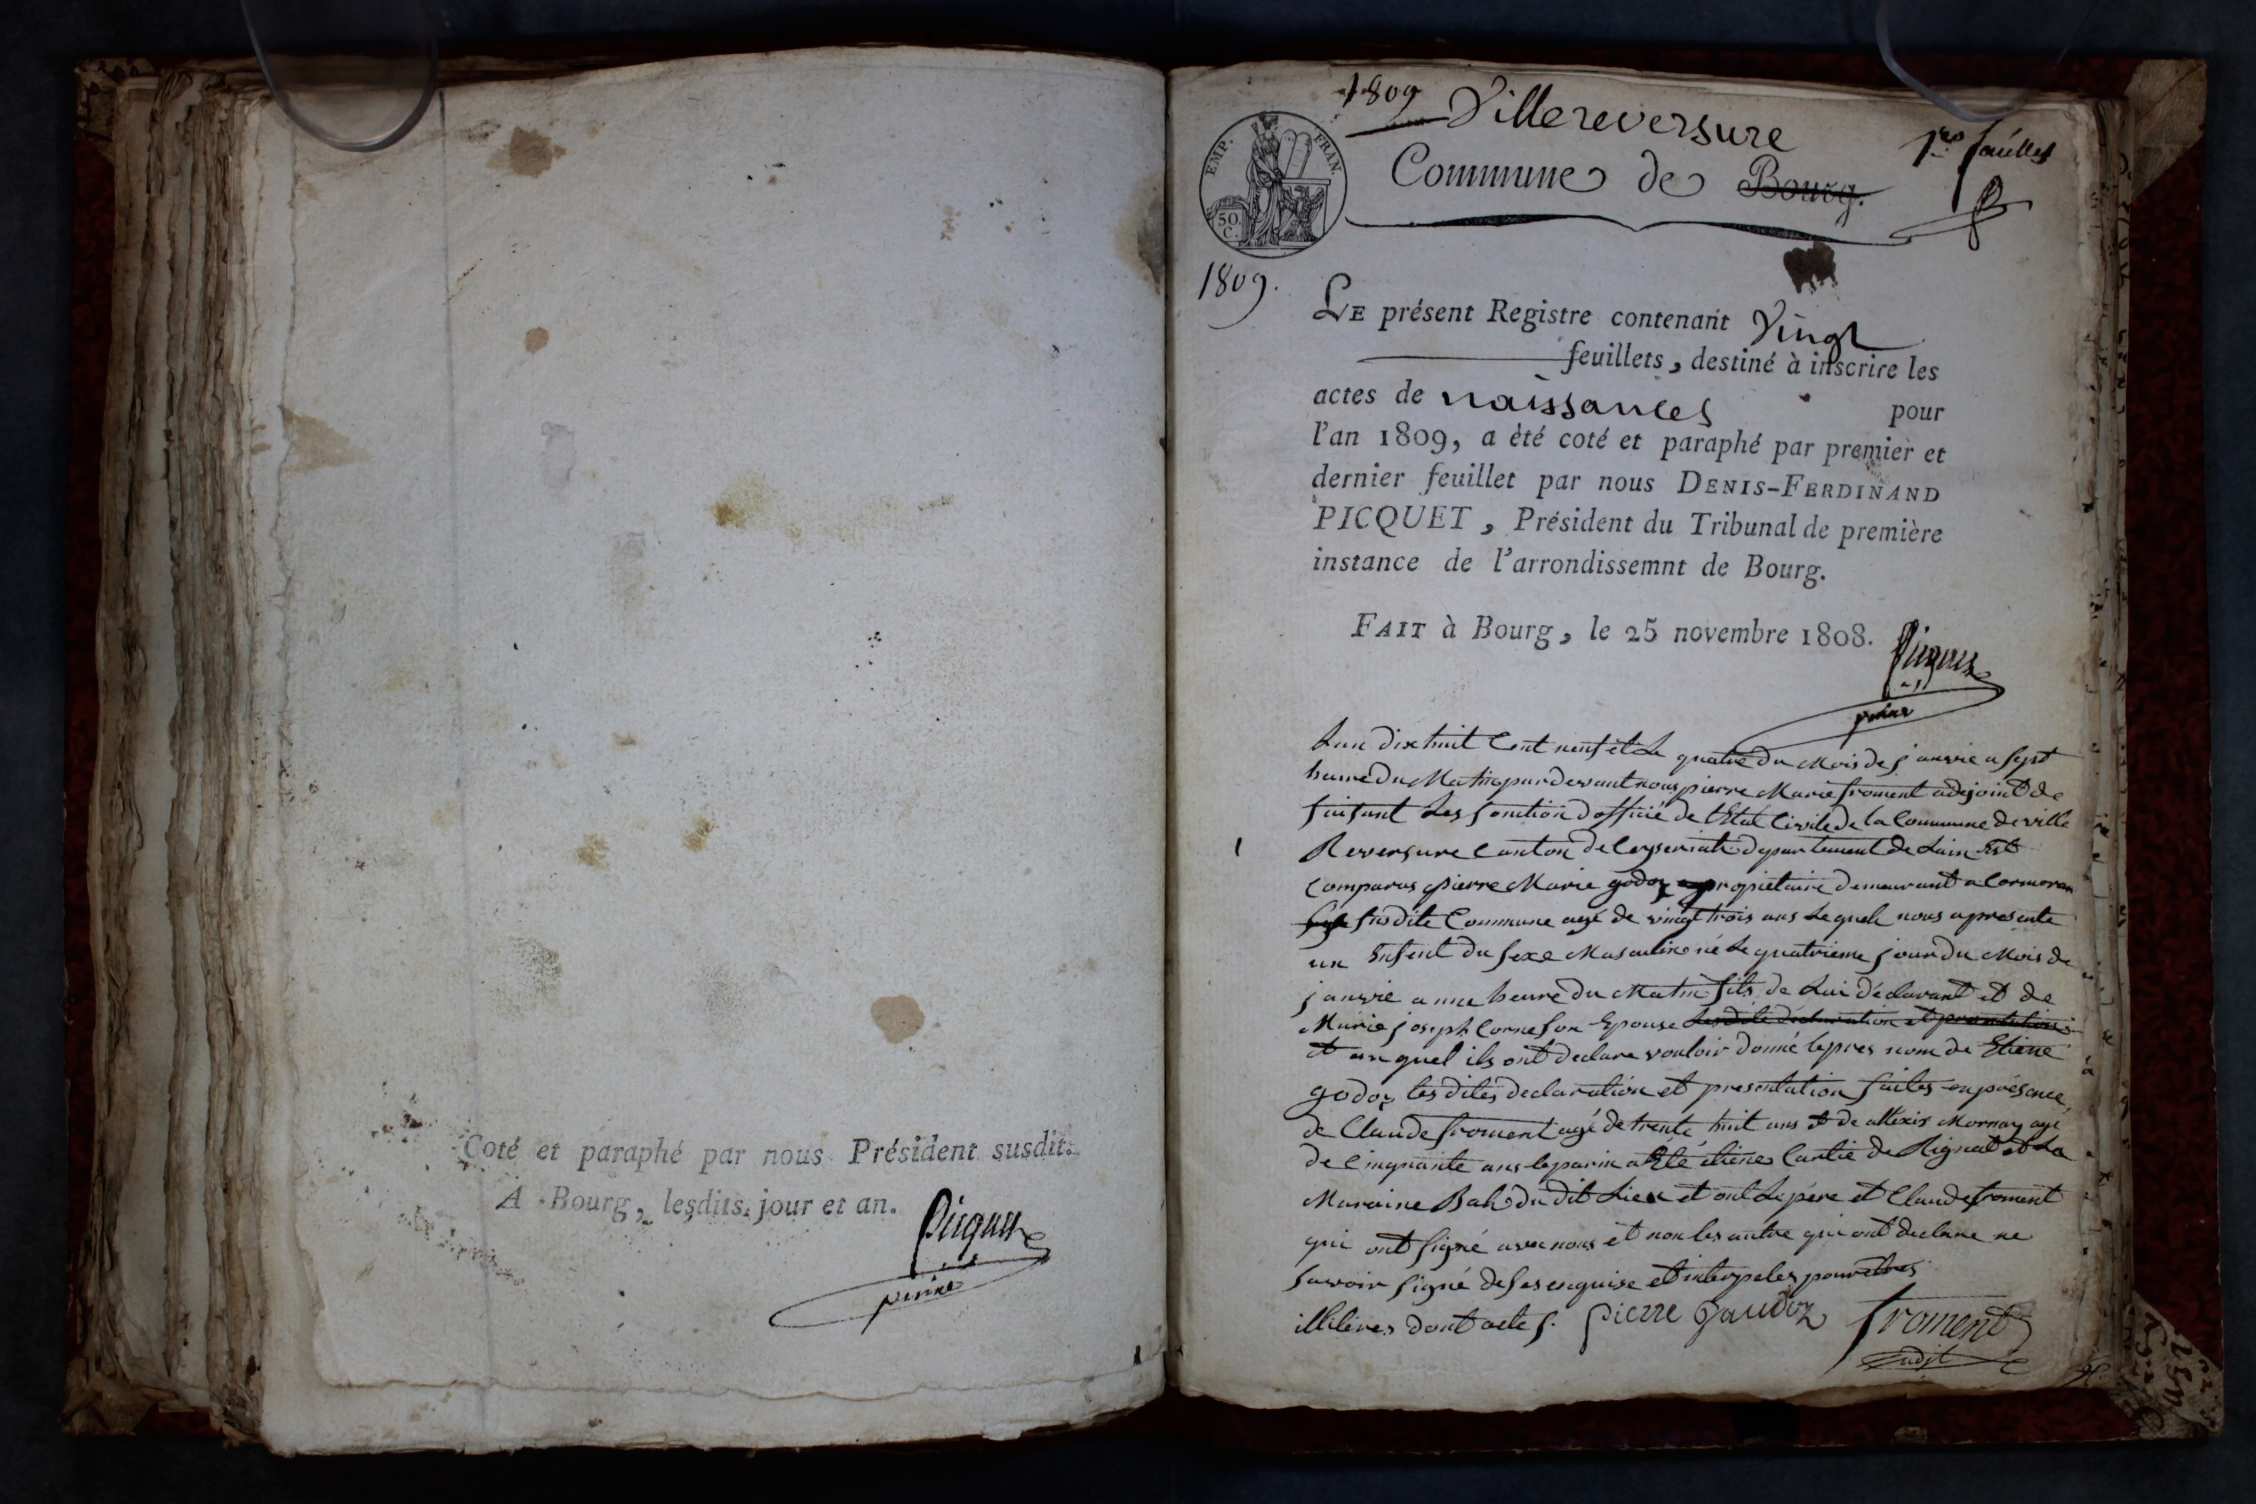 Coté et paraphé par nous Président susdit.
A Bourg, lesdits jour et an.
Picquet
1809
Villereversure
1er feuillet
EMP. FRAN.
50 C.
Commune de Bourg.
1809.
LE présent Registre contenant Vingt
feuillets, destiné à inscrire les
actes de naissances pour
l'an 1809, a èté coté et paraphé par premier et
dernier feuillet par nous DENIS-FERDINAND
PICQUET, Président du Tribunal de première
instance de l'arrondissemnt de Bourg.
FAIT à Bourg, le 25 novembre 1808.
Picquet
Lan dix huit Cent neuf et Le quatre du Mois de janvié a sept
heure du Matin pardevant nous pierre Marie froment adjoint de
faisant Les fonction d'officié de l'Etat Civile de la Commune deville
1
Reversure Canton de Ceyseriat departement de Lain Est
Comparus pierre Marie godoz propiétaire demeurant a Cormoran
susdite Commune agé de vingt trois ans Lequele nous apresente
un Enfent du sexe Masculin né Le quatrieme jour du Mois de
janvié a une heure du Matin fils de Lui déclarant et de
Marie joseph Corneson Epouse Lesdite declaration et presentation
et au quel ils ont declare vouloir donné le pres nom de Etiene
godoz les dites declaration et presentation faites en présance
de Claude froment agé de trente huit ans et de allexis Mornay agé
de Cinquante ans leparin a Eté etiene Cartié de Rignat et La
Maraine Bah dudit Lieu et ont Le père et Claude froment
qui ont signé avec nous et non les autre qui ont declare ne
savoir signé de ses enquise et interpeles pour etres
illiteres dont acte s. pierre Gaudoz froment
adjt